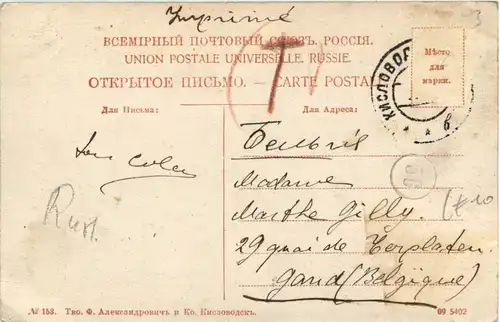 Imprimé
ВСЕМІРНЫЙ ПОЧТОВЫЙ СОЮЗЪ. РОССІЯ.
UNION POSTALE UNIVERSELLE. RUSSIE.
ОТКРЫТОЕ ПИСЬМО. — CARTE POSTA
T
Мѣсто
для
марки.
КИСЛОВОД
Для Письма:
Для Адреса:
Бельгія
Madame
Marthe Gilly.
29 quai de Terplaten
Gand (Belgique)
Russ.
№ 158. Тво. Ф. Александровичъ и Ко. Кисловодскъ.
09 5402